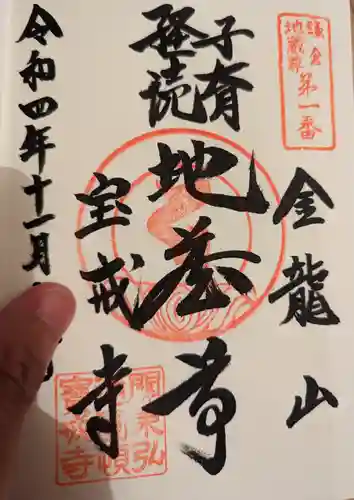 鎌倉
地蔵尊
第一番
金龍山
子育
経読
地蔵尊
宝戒寺
令和四年十一月